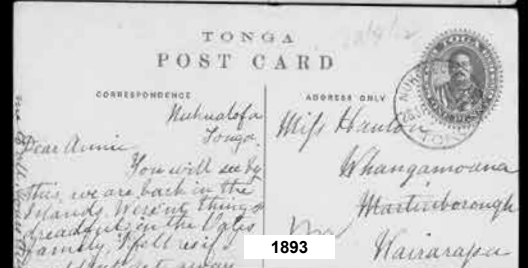 TONGA
POST CARD
CORRESPONDENCE
ADDRESS ONLY
Nukualofa
Tonga.
Dear Annie
You will see by
this, we are back in the
Islands. Weren't things
dreadful, in the
family. I fell
away
Miss Hanlon
Whangamoana
Martinborough
Wairarapa
1893